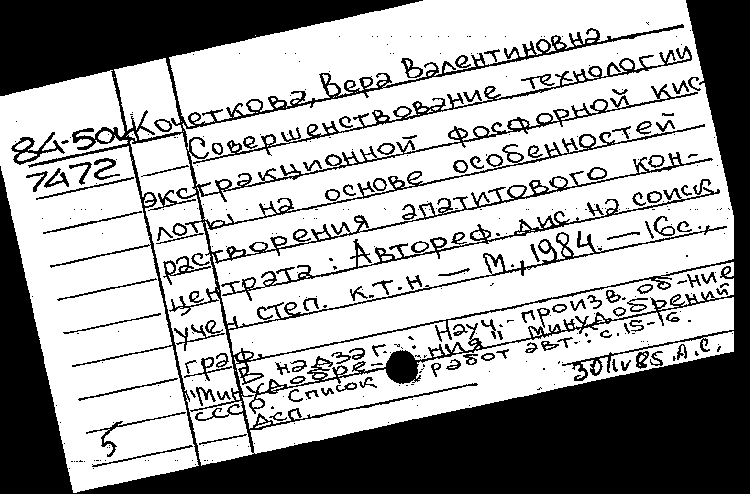 84-504
7472
Кочеткова, Вера Валентиновна.
Совершенствование технологии
экстракционной фосфорной кис-
лоты на основе особенностей
растворения апатитового кон-
центрата : Автореф. дис. на соиск.
учен. степ. к.т.н. — М., 1984. — 16с.,
граф.
В надзаг.: Науч.-произв. об-ние
"Минудобрения", Минудобрений
СССР. Список работ авт.: с. 15-16.
Дсп.
30/IV85. А.С.
5